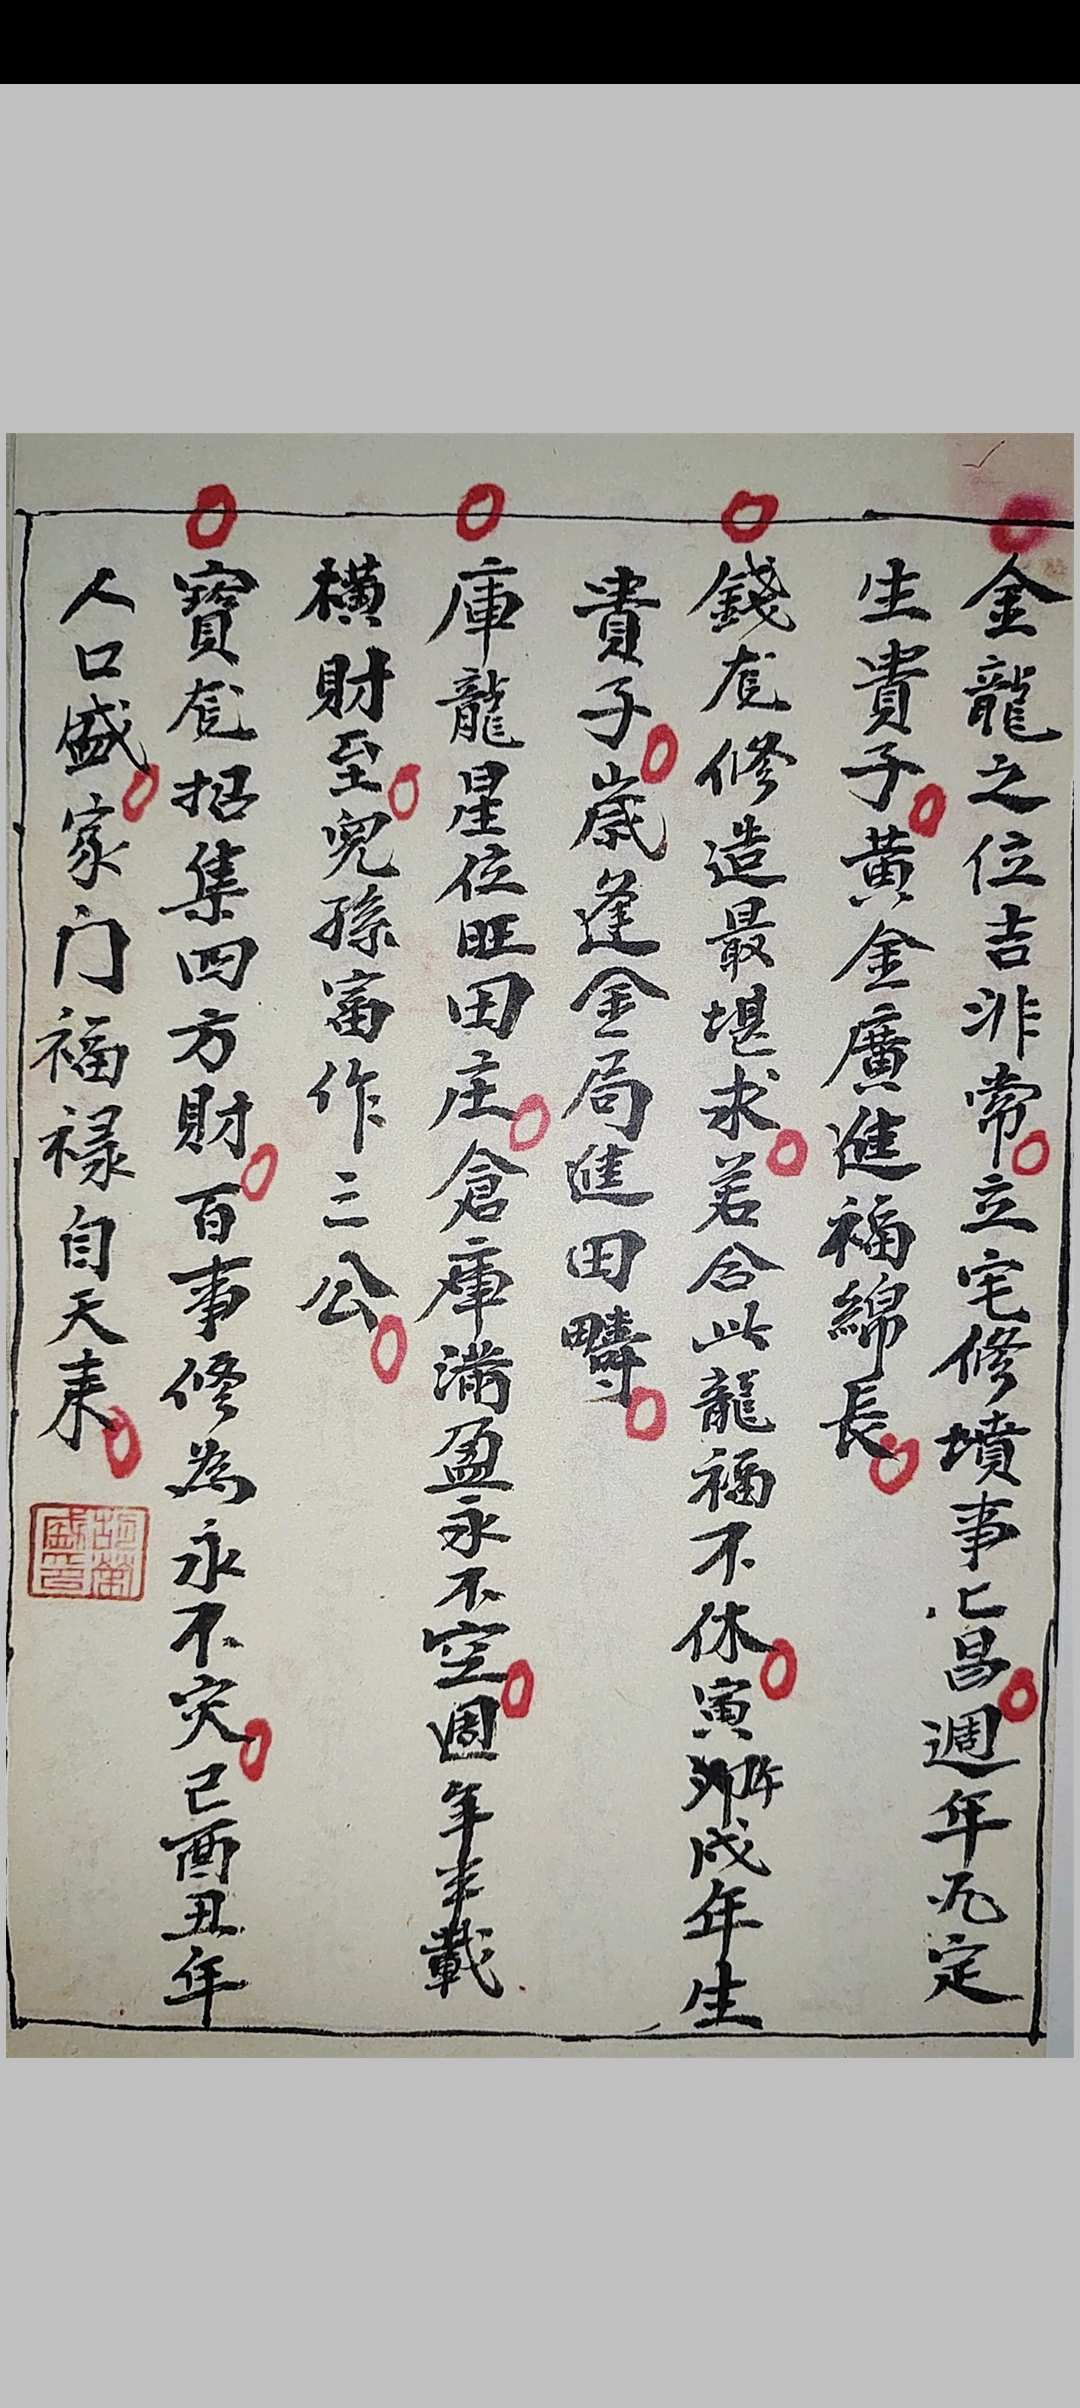 金龍之位吉非常立宅修墳事亡昌週年定
生貴子黃金廣進福綿長
錢虎修造最堪求若合此龍福不休寅卯戌年生
貴子歲逢金局進田疇
庫龍星位旺田庄倉庫滿盈永不空週年半載
橫財至兒孫富作三公
寶虎招集四方財百事修為永不灾己酉丑年
人口盛家门福禄自天来